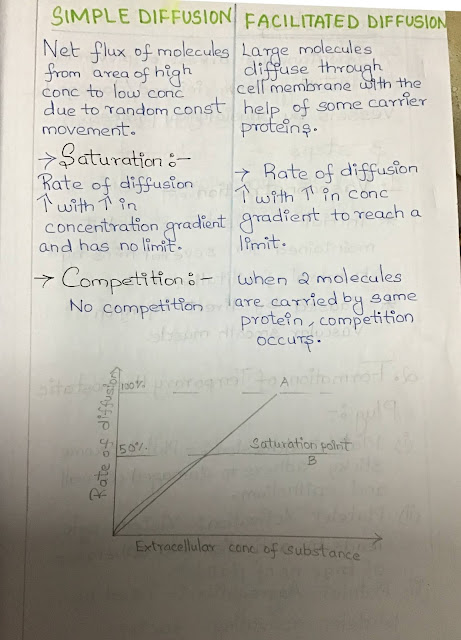 SIMPLE DIFFUSION
Net flux of molecules
from area of high
conc to low conc
due to random const
movement.
→ Saturation :-
Rate of diffusion
↑ with ↑ in
concentration gradient
and has no limit.
→ Competition :-
No competition
FACILITATED DIFFUSION
Large molecules
diffuse through
cell membrane with the
help of some carrier
proteins.
→ Rate of diffusion
↑ with ↑ in conc
gradient to reach a
limit.
when 2 molecules
are carried by same
protein, competition
occurs.
Rate of diffusion
100%
A
50%
Saturation point
B
Extracellular conc of substance